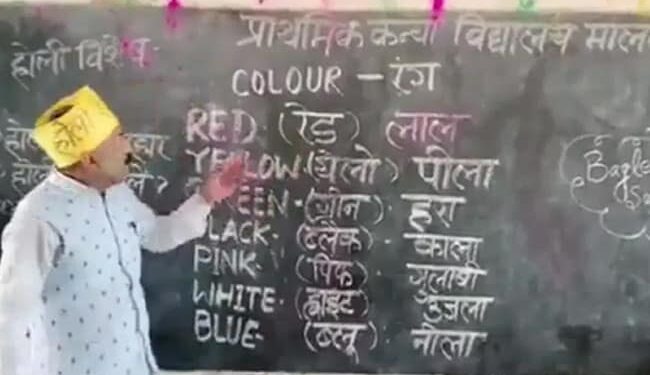 प्राथमिक कन्या विद्यालय
होली विशेष-
COLOUR - रंग
RED. (रेड) लाल
YELLOW. (येलो) पीला
EEN - (ग्रीन). हरा
LACK- (ब्लैक). काला
PINK- (पिंक) गुलाबी
WHITE. (ह्वाइट) उजला
BLUE- (ब्लू) नीला
होली